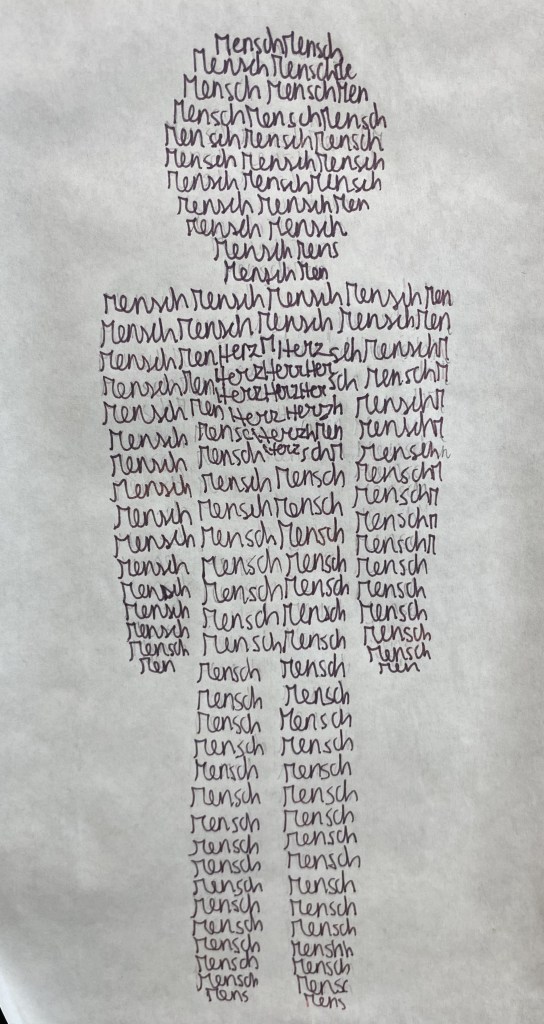 MenschMensch
MenschMenschMe
Mensch MenschMen
MenschMenschMensch
MenschMenschMensch
Mensch MenschMensch
Mensch MenschMensch
Mensch MenschMen
Mensch Mensch
MenschMens
MenschMen
MenschMenschMenschMenschMen
MenschMensch Mensch MenschMen
MenschMenHerz M HerzschMenschM
MenschMenHerzHerrHerschMenschM
HerzHerzHer
MenschMenHerzHerzhMenschM
Mensch MenschHerzhMen MenschM
Mensch MenschHerzschM Menschh
Mensch Mensch Mensch MenschM
Mensch MenschMensch MenschM
Mensch MenschMensch MenschM
Mensch MenschMensch MenschM
Mensch Mensch Mensch Mensch
Mensch MenschMensch Mensch
Mensch MenschMensch Mensch
Mensch MenschMensch Mensch
Mensch Mensch
Men Men
Mensch Mensch
Mensch Mensch
Mensch Mensch
Mensch Mensch
Mensch Mensch
Mensch Mensch
Mensch Mensch
Mensch Mensch
Mensch Mensch
Mensch Mensch
Mensch Mensch
Mensch Mensch
Mensch Menshh
Mensch Mensch
Mensch Mensc
Mens Mens